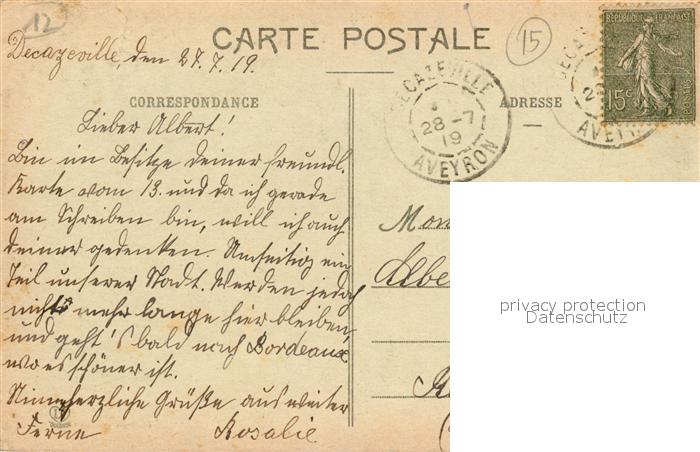 12
CARTE POSTALE
15
Decazeville, den 27. 7. 19.
CORRESPONDANCE
ADRESSE
DECAZEVILLE
28 -7
19
AVEYRON
RÉPUBLIQUE FRANÇAISE
15c
AVEYR
Lieber Albert!
Bin im Besitze deiner freundl.
Karte vom 13. und da ich gerade
am Schreiben bin, will ich auch
deiner gedenken. Umseitig ein
Teil unserer Stadt. Werden jedoch
nicht mehr lange hier bleiben,
und geht's bald nach Bordeaux
wo es schöner ist.
Nun herzliche Grüße aus weiter
Ferne Rosalie
Mon
Albe
privacy protection
Datenschutz